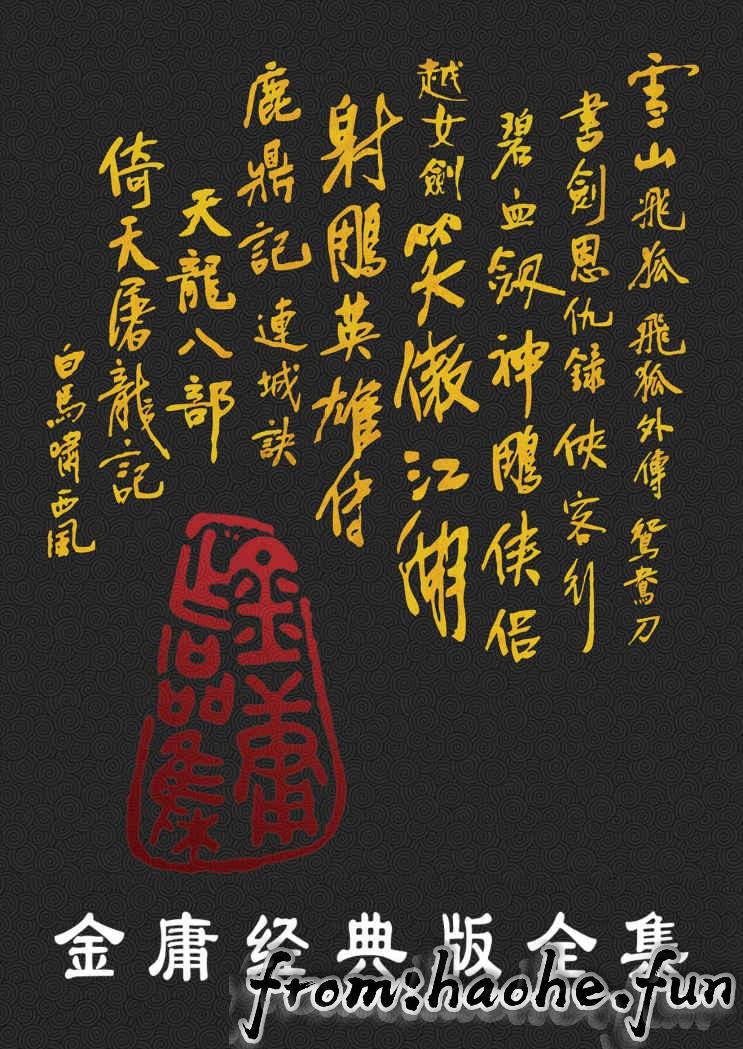 雪山飛狐 飛狐外傳 鴛鴦刀
書劍恩仇錄 俠客行
碧血劔 神鵰侠侣
越女劍 笑傲江湖
射鵰英雄傳
鹿鼎記 連城訣
天龍八部
倚天屠龍記
白馬嘯西風
金庸作品集
金庸经典版全集
from:haohe.fun